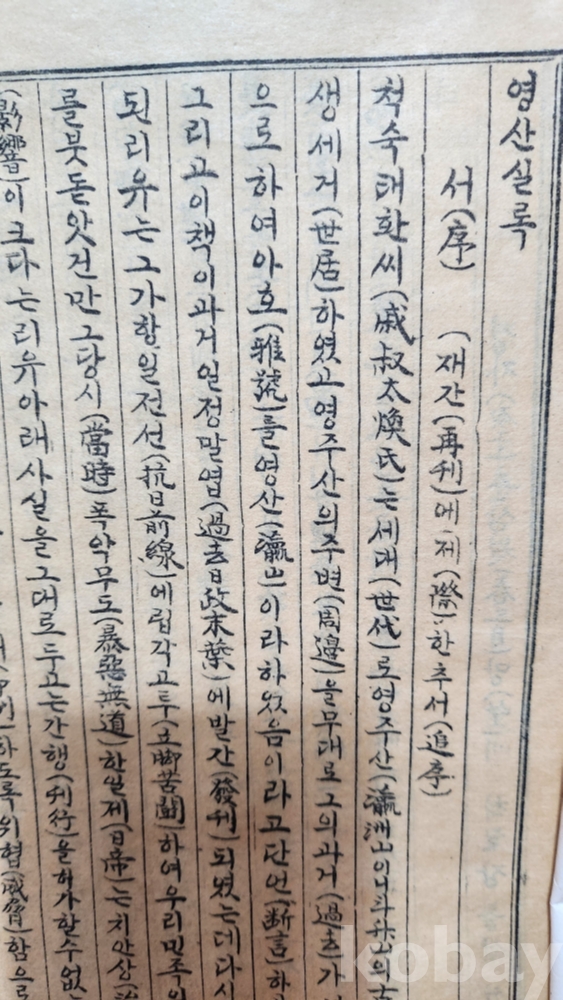 영산실록
서(序) (재간(再刊)에 제(際)한 추서(追序)
척숙태환씨(戚叔太煥氏)는세대(世代)로영주산(瀛洲山이니
생세거(世居)하였고영주산의주변(周邊)을무대로그의과거(過去)가
으로하여아호(雅號)를영산(瀛山)이라하였음이라고단언(断言)하
그리고이책이과거일정말엽(過去日政末葉)에발간(發刊)되였는데다시
된리유는그가항일전선(抗日前線)에립각고투(立脚苦鬪)하여우리민족의
를붓돋앗건만그당시(當時)폭악무도(暴惡無道)한일제(日帝)는치안상
影響)이크다는리유아래사실을그대로두고는간행(刊行)을허가할수없는
하도록위협(威脅)함으로
kobay